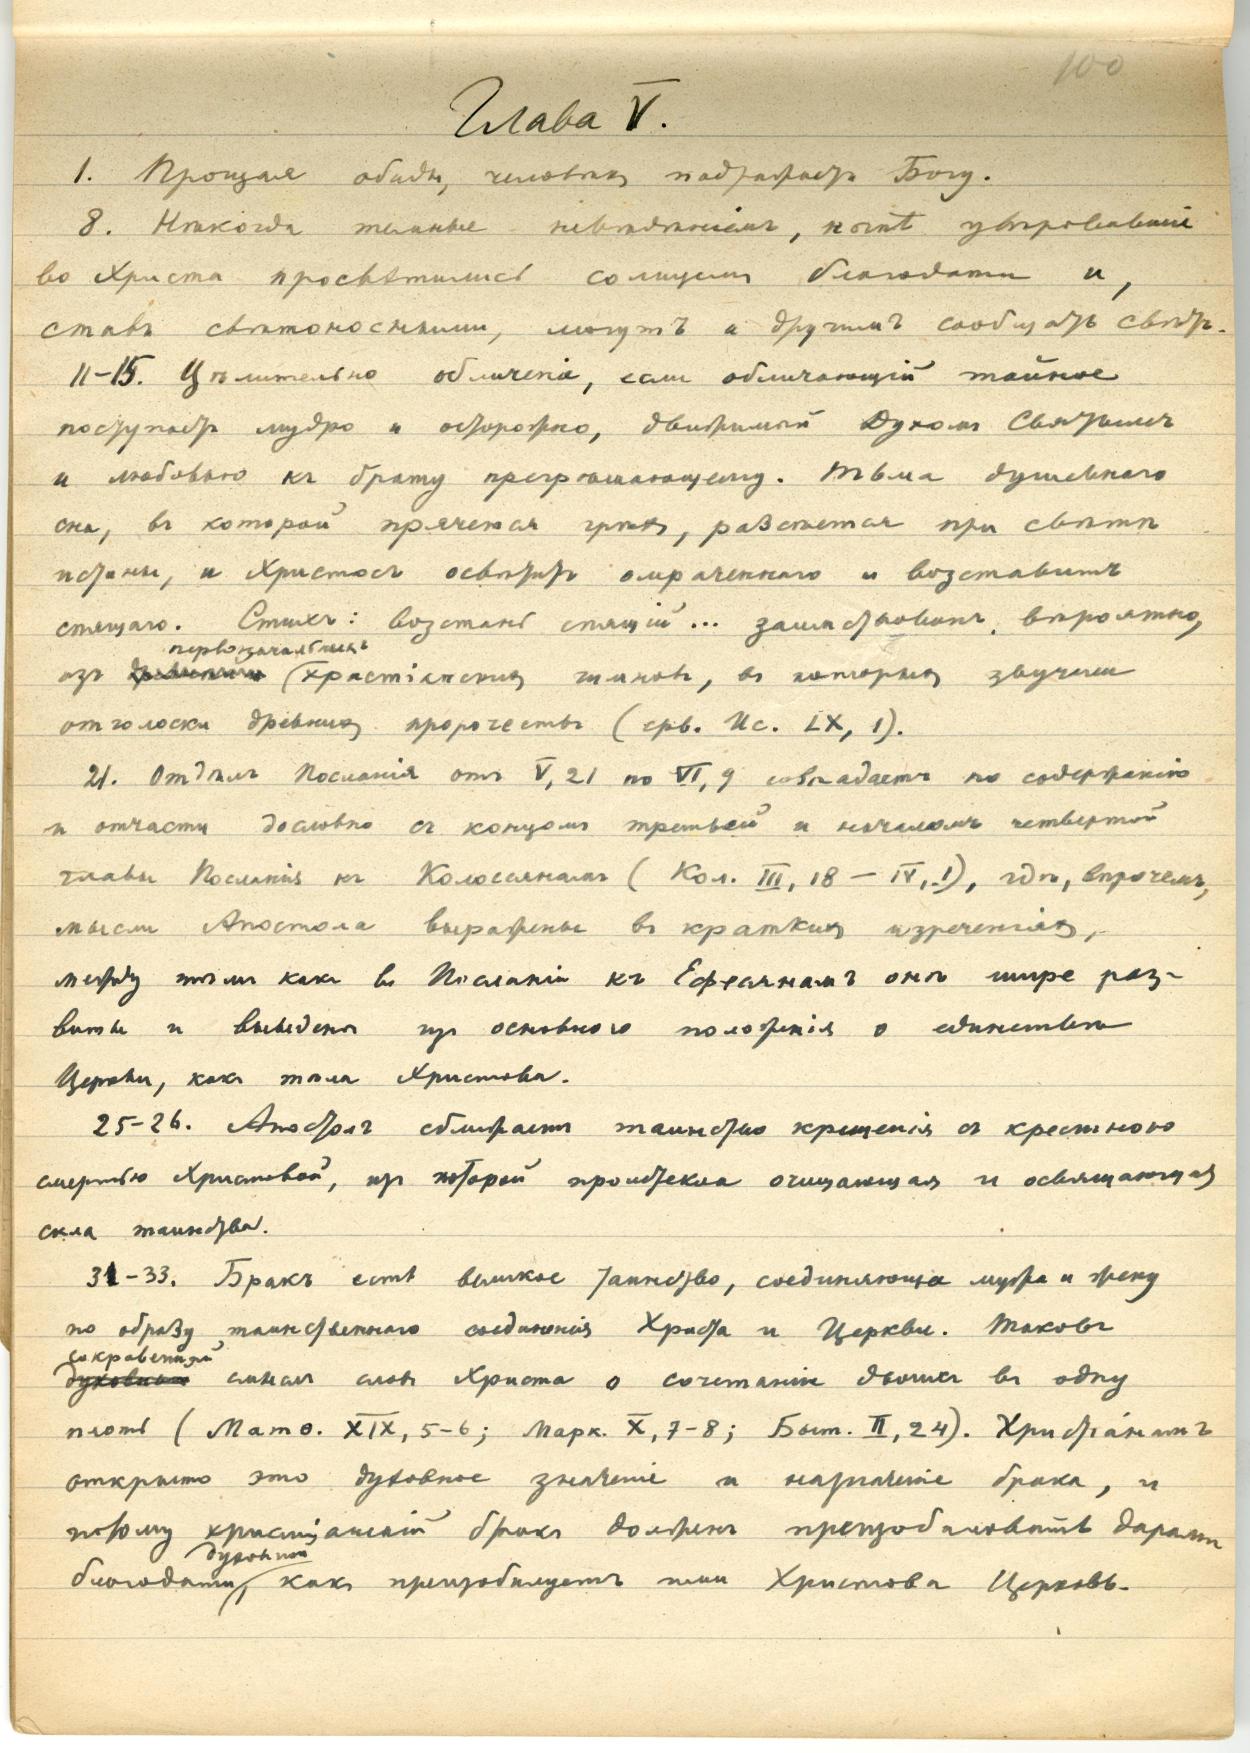 100
Глава V.
1. Прощая обиды, человѣкъ подражаетъ Богу.
8. Нѣкогда темные невѣдѣніемъ, нынѣ увѣровавшіе
во Христа просвѣтились солнцемъ благодати и,
ставъ свѣтоносными, могутъ и другимъ сообщать свѣтъ.
11-15. Цѣлительно обличеніе, если обличающій тайное
поступаетъ мудро и осторожно, движимый Духомъ Святымъ
и любовью къ брату прегрѣшающему. Тьма душевнаго
сна, въ которой прячется грѣхъ, разсѣется при свѣтѣ
истины, и Христосъ освѣтитъ омраченнаго и возставитъ
спящаго. Стихъ: возстань спящій... заимствованъ, вѣроятно,
первоначальныхъ
изъ христіанскихъ гимновъ, въ которыхъ звучали
отголоски древнихъ пророчествъ (срв. Ис. LX, 1).
21. Отдѣлъ Посланія отъ V, 21 по VI, 9 совпадаетъ по содержанію
и отчасти дословно съ концомъ третьей и началомъ четвертой
главы Посланія къ Колоссянамъ (Кол. III, 18 – IV, 1), гдѣ, впрочемъ,
мысли Апостола выражены въ краткихъ изреченіяхъ,
между тѣмъ какъ въ Посланіи къ Ефесянамъ онѣ шире раз-
виты и выведены изъ основного положенія о единствѣ
Церкви, какъ тѣла Христова.
25-26. Апостолъ сближаетъ таинство крещенія съ крестною
смертью Христовой, изъ которой проистекла очищающая и освящающая
сила таинства.
31-33. Бракъ есть великое таинство, соединяющее мужа и жену
по образу таинственнаго соединенія Христа и Церкви. Таковъ
сокровенный
духовный смыслъ словъ Христа о сочетаніи двоихъ въ одну
плоть (Матѳ. XIX, 5-6; Марк. X, 7-8; Быт. II, 24). Христіанамъ
открыто это духовное значеніе и назначеніе брака, и
потому христіанскій бракъ долженъ преизобиловать дарами
духовной
благодати, какъ преизобилуетъ ими Христова Церковь.